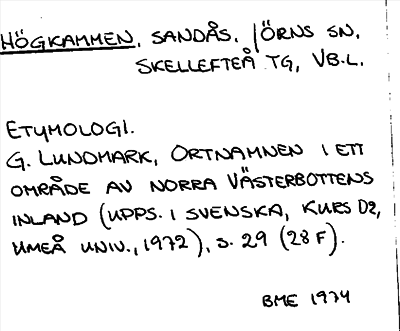 HÖGKAMMEN. SANDÅS. JÖRNS SN.
SKELLEFTEÅ TG, VB.L.
ETYMOLOGI.
G. LUNDMARK, ORTNAMNEN I ETT
OMRÅDE AV NORRA VÄSTERBOTTENS
INLAND (UPPS. I SVENSKA, KURS D2,
UMEÅ UNIV., 1972), S. 29 (28 F).
BME 1974